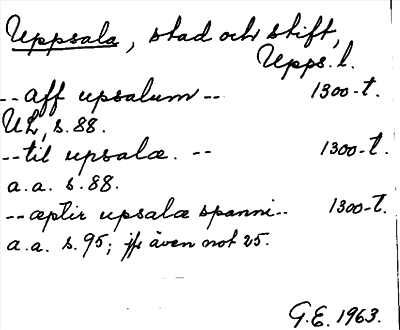 Uppsala, stad och stift,
Upps. l.
-- aff upsalum -- 1300-t.
UL, s. 88.
-- til upsalæ. -- 1300-t.
a.a. s. 88.
-- æptir upsalæ spanni -- 1300-t.
a.a. s. 95; jfr även not 25.
G.E. 1963.